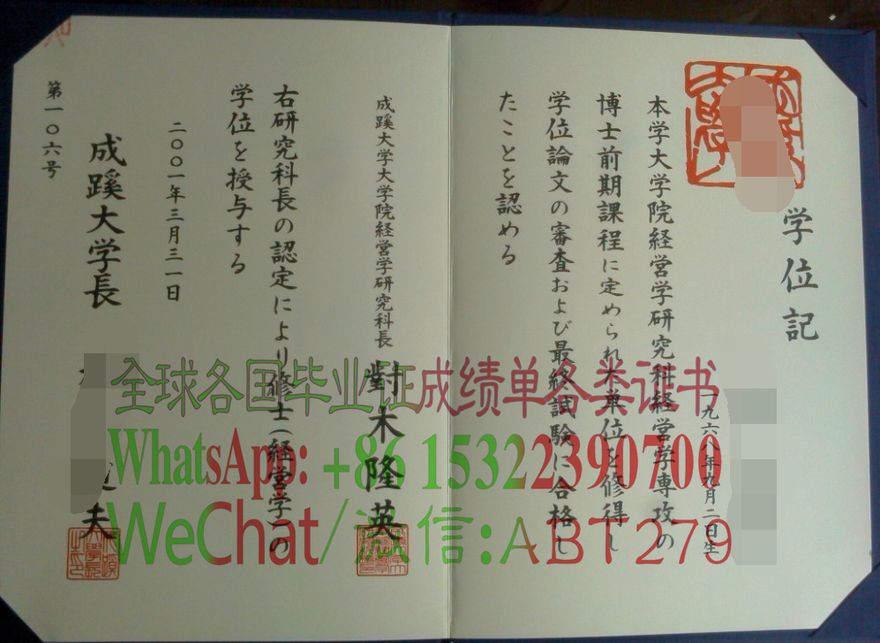 学位記
一九六八年九月二日生
本学大学院経営学研究科経営学専攻の
博士前期課程に定められた単位を修得し
学位論文の審査および最終試験に合格し
たことを認める
成蹊大学大学院経営学研究科長
對木隆英
右研究科長の認定により修士(経営学)の
学位を授与する
二〇〇一年三月三一日
成蹊大学長
夫
第一〇六号
全球各国毕业证成绩单各类证书
WhatsApp: +86 15322390700
WeChat/微信:ABT279